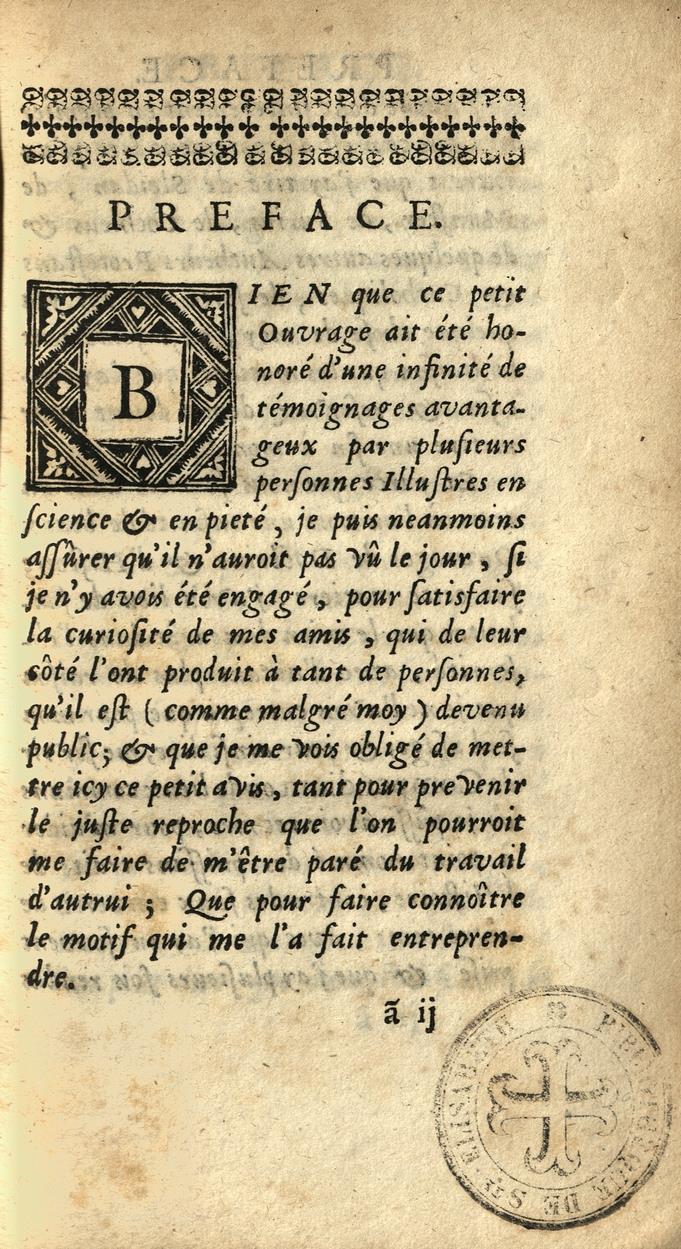 PREFACE.
BIEN que ce petit
Ouvrage ait été ho-
noré d'une infinité de
témoignages avanta-
geux par pluſieurs
perſonnes Illuſtres en
ſcience & en pieté, je puis neanmoins
aſſûrer qu'il n'auroit pas vû le jour, ſi
je n'y avois été engagé, pour ſatisfaire
la curioſité de mes amis, qui de leur
côté l'ont produit à tant de perſonnes,
qu'il eſt (comme malgré moy) devenu
public; & que je me vois obligé de met-
tre icy ce petit avis, tant pour prevenir
le juſte reproche que l'on pourroit
me faire de m'être paré du travail
d'autrui; Que pour faire connoître
le motif qui me l'a fait entrepren-
dre.
ã ij
DE Ste ELISABETH